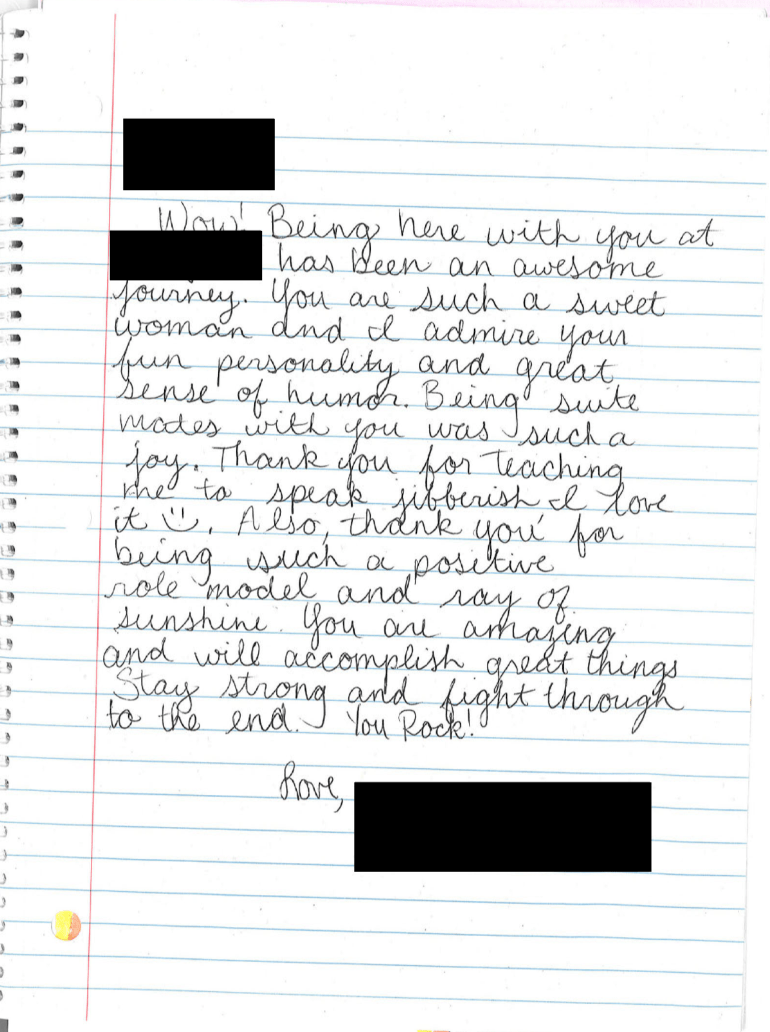 Wow! Being here with you at
has been an awesome
journey. You are such a sweet
woman and I admire your
fun personality and great
sense of humor. Being suite
mates with you was such a
joy. Thank you for teaching
me to speak jibberish I love
it :). Also, thank you for
being such a positive
role model and ray of
sunshine. You are amazing
and will accomplish great things
Stay strong and fight through
to the end. You Rock!
Love,